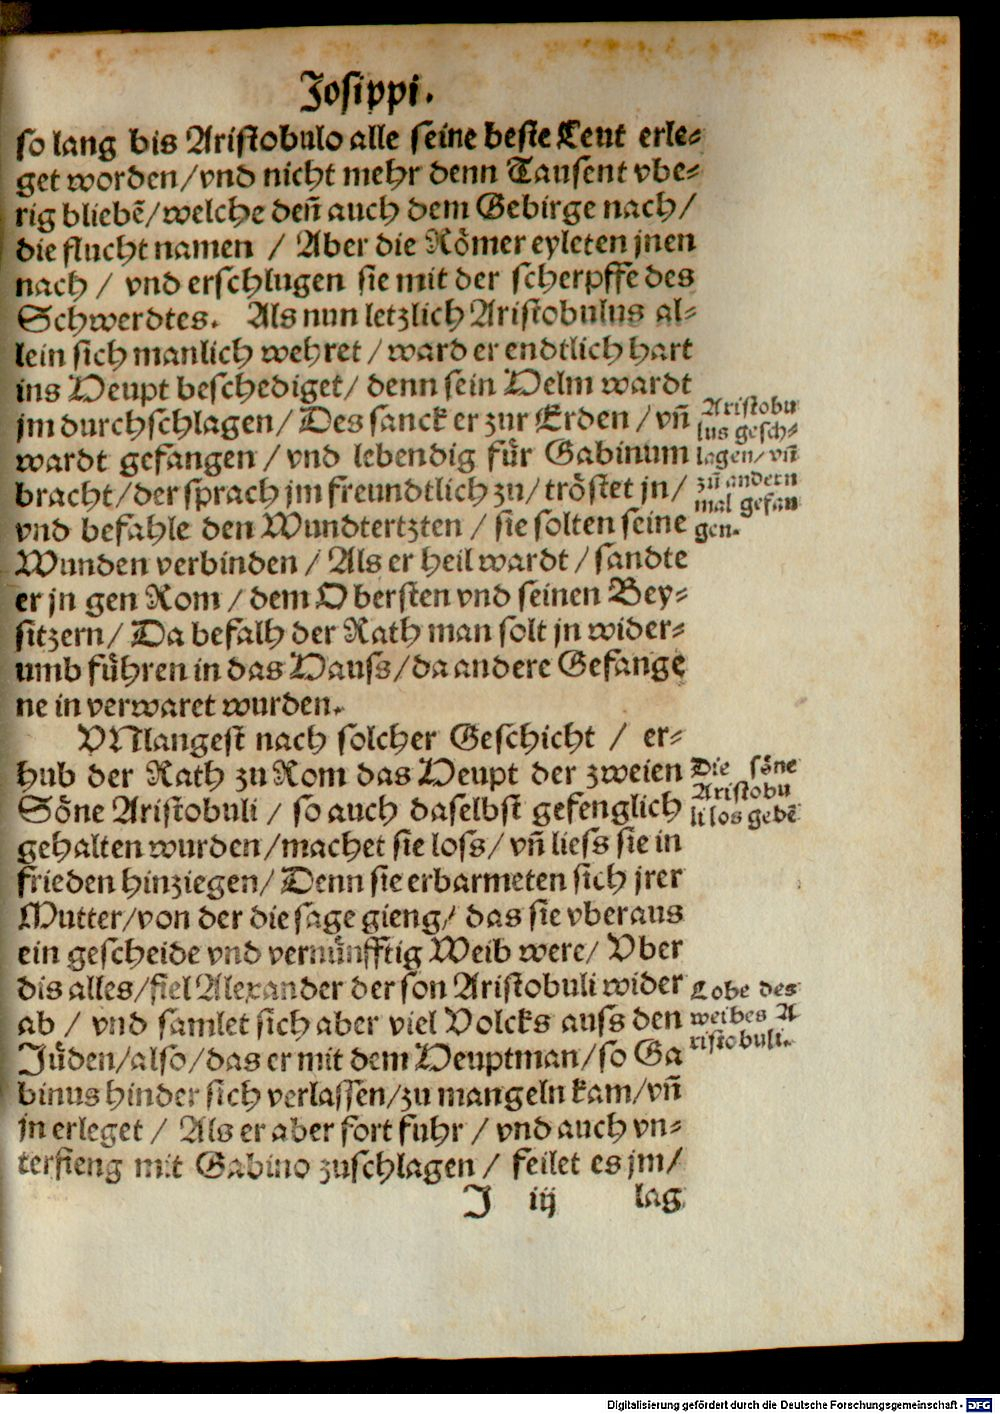 Josippi.
so lang bis Aristobulo alle seine beste Leut erle⸗
get worden/vnd nicht mehr denn Tausent vbe⸗
rig bliebẽ/welche deñ auch dem Gebirge nach/
die flucht namen / Aber die Roͤmer eyleten jnen
nach / vnd erschlugen sie mit der scherpffe des
Schwerdtes. Als nun letzlich Aristobulus al⸗
lein sich manlich wehret / ward er endtlich hart
ins Heupt beschediget/ denn sein Helm wardt
jm durchschlagen/ Des sanck er zur Erden / vñ
wardt gefangen / vnd lebendig fuͤr Gabinum
bracht/der sprach jm freundtlich zu/ troͤstet jn/
vnd befahle den Wundtertzten / sie solten seine
Wunden verbinden / Als er heil wardt / sandte
er jn gen Rom / dem Obersten vnd seinen Bey⸗
sitzern/ Da befalh der Rath man solt jn wider⸗
umb fuͤhren in das Hauss/da andere Gefange
ne in verwaret wurden.
Aristobu
lus gesch⸗
lagen/ vñ
zũ andern
mal gefan
gen.
VNlangest nach solcher Geschicht / er⸗
hub der Rath zu Rom das Heupt der zweien
Soͤne Aristobuli / so auch daselbst gefenglich
gehalten wurden/machet sie loss/ vñ liess sie in
frieden hinziegen/ Denn sie erbarmeten sich jrer
Mutter/von der die sage gieng/ das sie vberaus
ein gescheide vnd vernuͤnfftig Weib were/ Vber
dis alles/fiel Alexander der son Aristobuli wider
ab / vnd samlet sich aber viel Volcks auss den
Juͤden/also/das er mit dem Heuptman/so Ga
binus hinder sich verlassen/zu mangeln kam/vñ
jn erleget / Als er aber fort fuhr / vnd auch vn⸗
terfieng mit Gabino zuschlagen / feilet es jm/
Die soͤne
Aristobu
li los gebẽ
Lobe des
weibes A
ristobuli.
J iij lag
Digitalisierung gefördert durch die Deutsche Forschungsgemeinschaft - DFG